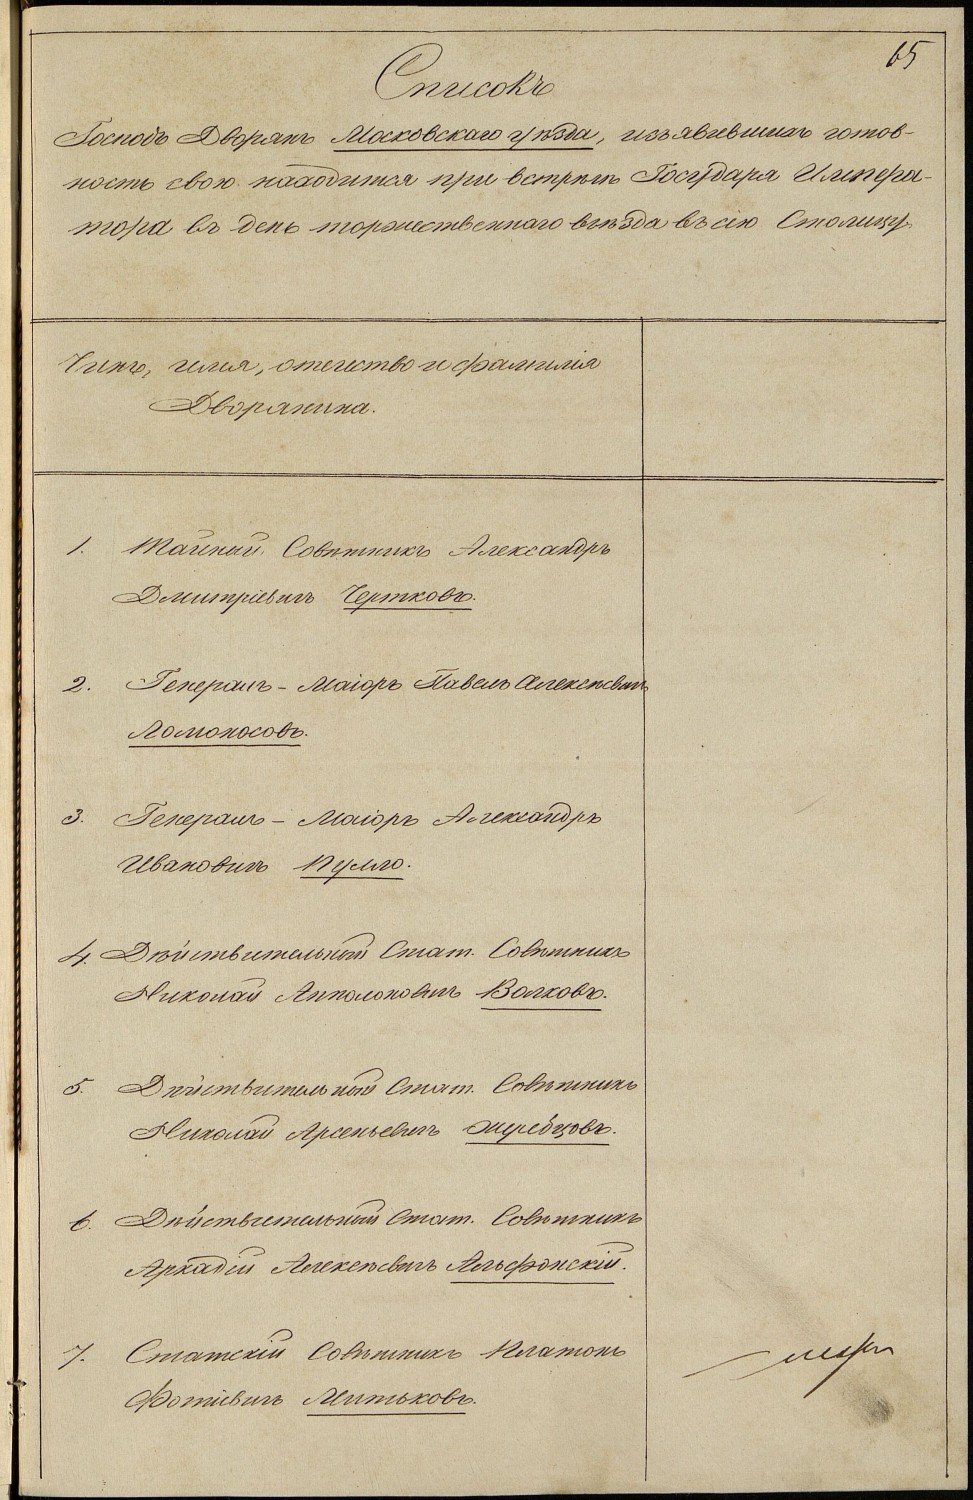 65
Списокъ
Господъ Дворянъ Московскаго уѣзда, изъявившихъ готов-
ность свою находится при встрѣчѣ Государя Импера-
тора въ день торжественнаго въѣзда въ сію Столицу
Чинъ, имя, отечество и фамилія
Дворянина.
1. Тайный Совѣтникъ Александръ
Дмитріевичъ Чертковъ.
2. Генералъ-Маіоръ Павелъ Алексѣевичъ
Ломоносовъ.
3. Генералъ-Маіоръ Александръ
Ивановичъ Пулло.
4. Дѣйствительный Стат. Совѣтникъ
Николай Апполоновичъ Волковъ.
5. Дѣйствительный Стат. Совѣтникъ
Николай Арсеньевичъ Жеребцовъ.
6. Дѣйствительный Стат. Совѣтникъ
Аркадій Алексѣевичъ Альфонскій.
7. Статскій Совѣтникъ Платонъ
Фотіевичъ Митьковъ.